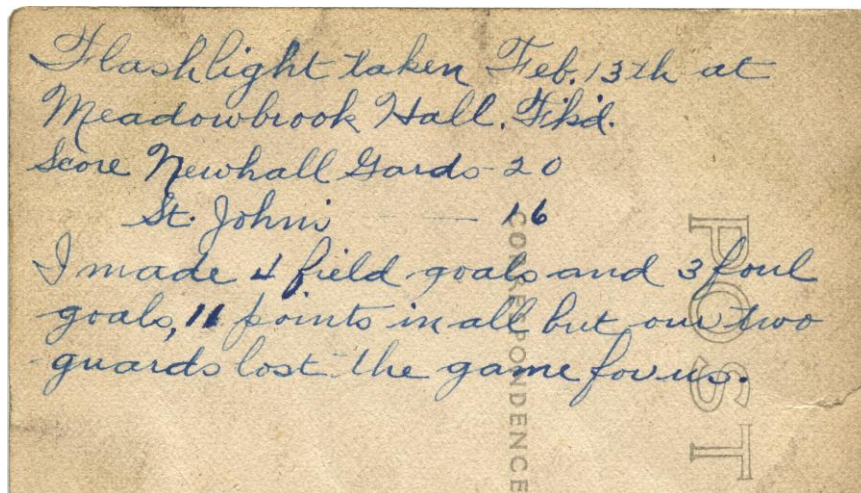 Flashlight taken Feb. 13th at
Meadowbrook Hall. Fkd.
Score Newhall Gards - 20
St. Johns — 16
I made 4 field goals and 3 foul
goals, 11 points in all but our two
guards lost the game for us.
POST
CORRESPONDENCE